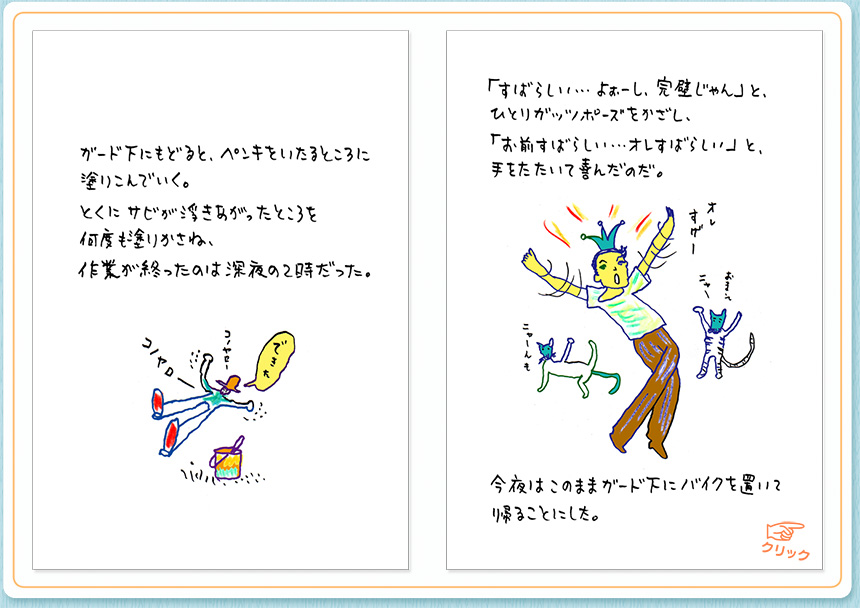 ガード下にもどると、ペンキをいたるところに
塗りこんでいく。
とくにサビが浮きあがったところを
何度も塗りかさね、
作業が終ったのは深夜の2時だった。
コノヤロ
コノヤロー
できた
「すばらしい…よぉーし、完璧じゃん」と、
ひとりガッツポーズをかざし、
「お前すばらしい…オレすばらしい」と、
手をたたいて喜んだのだ。
オレ
すげー
ニャー
ニャーんも
今夜はこのままガード下にバイクを置いて
帰ることにした。
クリック